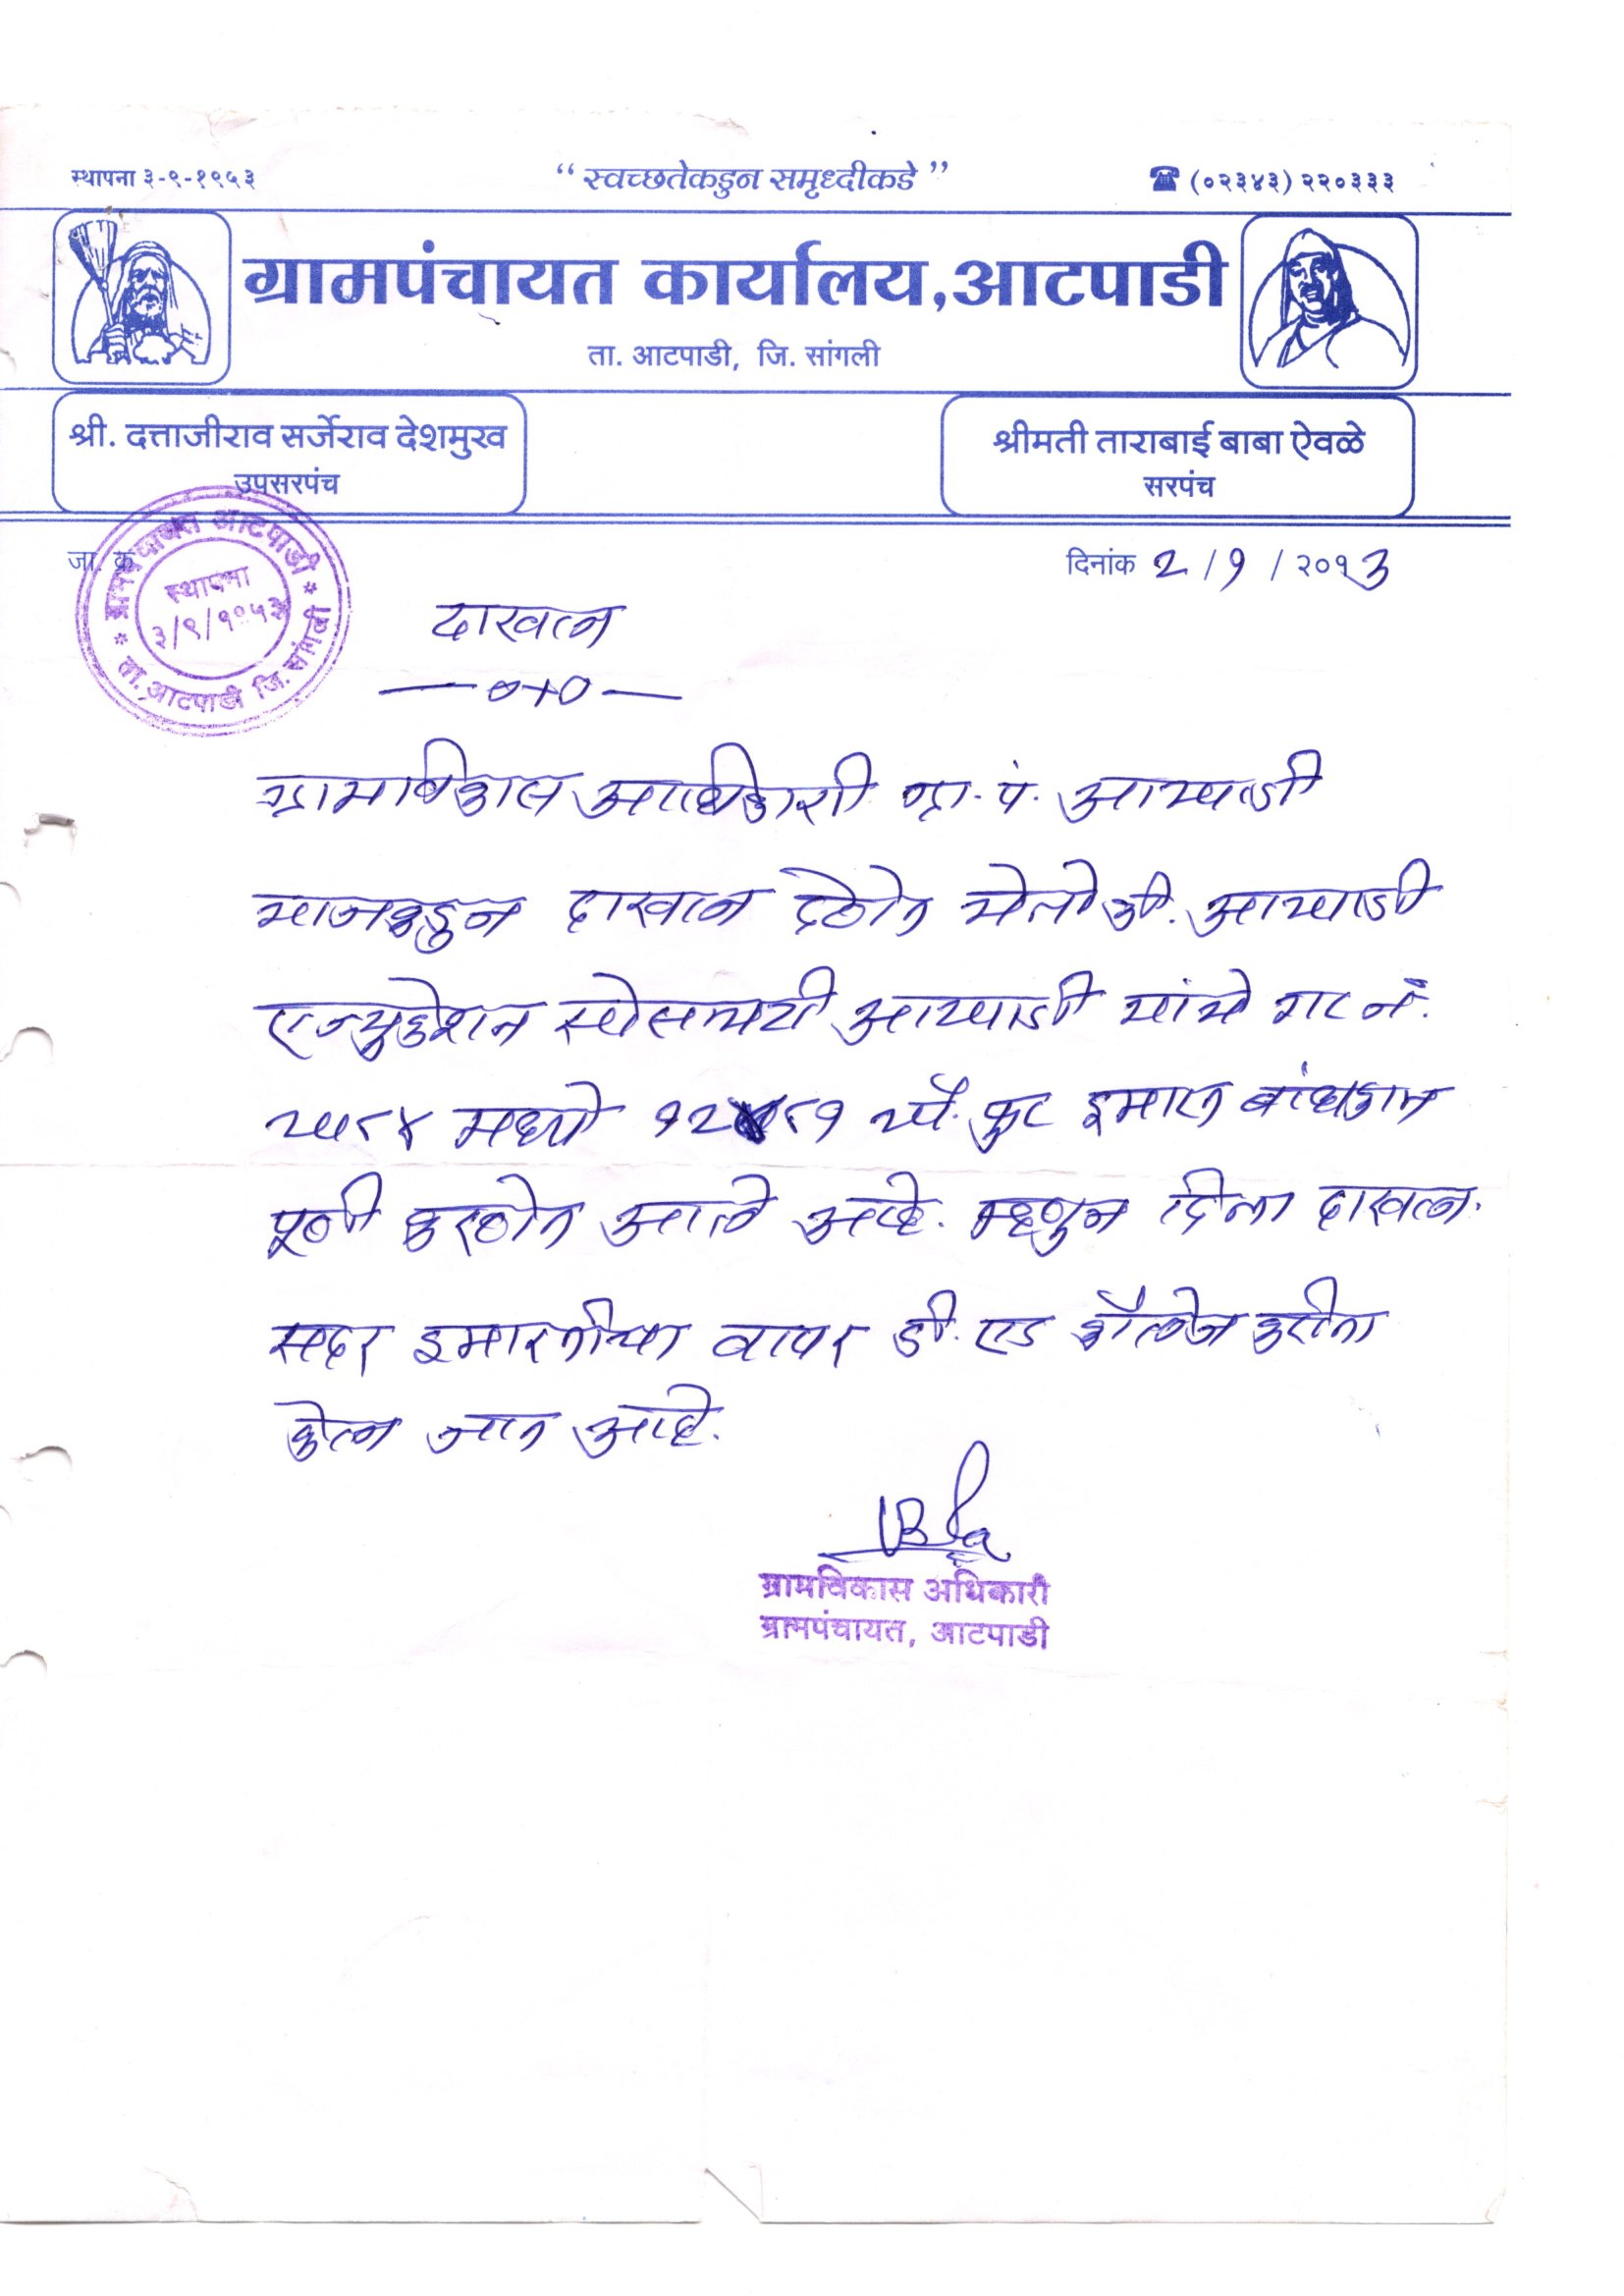 स्थापना ३-९-१९५३
“ स्वच्छतेकडुन समृध्दीकडे ”
☎ (०२३४३) २२०३३३
ग्रामपंचायत कार्यालय,आटपाडी
ता. आटपाडी, जि. सांगली
श्री. दत्ताजीराव सर्जेराव देशमुख
उपसरपंच
श्रीमती ताराबाई बाबा ऐवळे
सरपंच
जा. क्र.
दिनांक २/१/२०१३
ग्रामपंचायत आटपाडी
स्थापना
३/९/१९५३
ता. आटपाडी जि. सांगली
दाखला
ग्रामविकास अधिकारी ग्रा. पं. आटपाडी
याजकडुन दाखला देणेत येतो की. आटपाडी
एज्युकेशन सोसायटी आटपाडी यांचे गट नं.
मध्ये चौ. फुट इमारत बांधकाम
पूर्ण करणेत आले आहे. म्हणुन दिला दाखला.
सदर इमारतीचा वापर डी. एड कॉलेज करीता
केला जात आहे.
ग्रामविकास अधिकारी
ग्रामपंचायत, आटपाडी